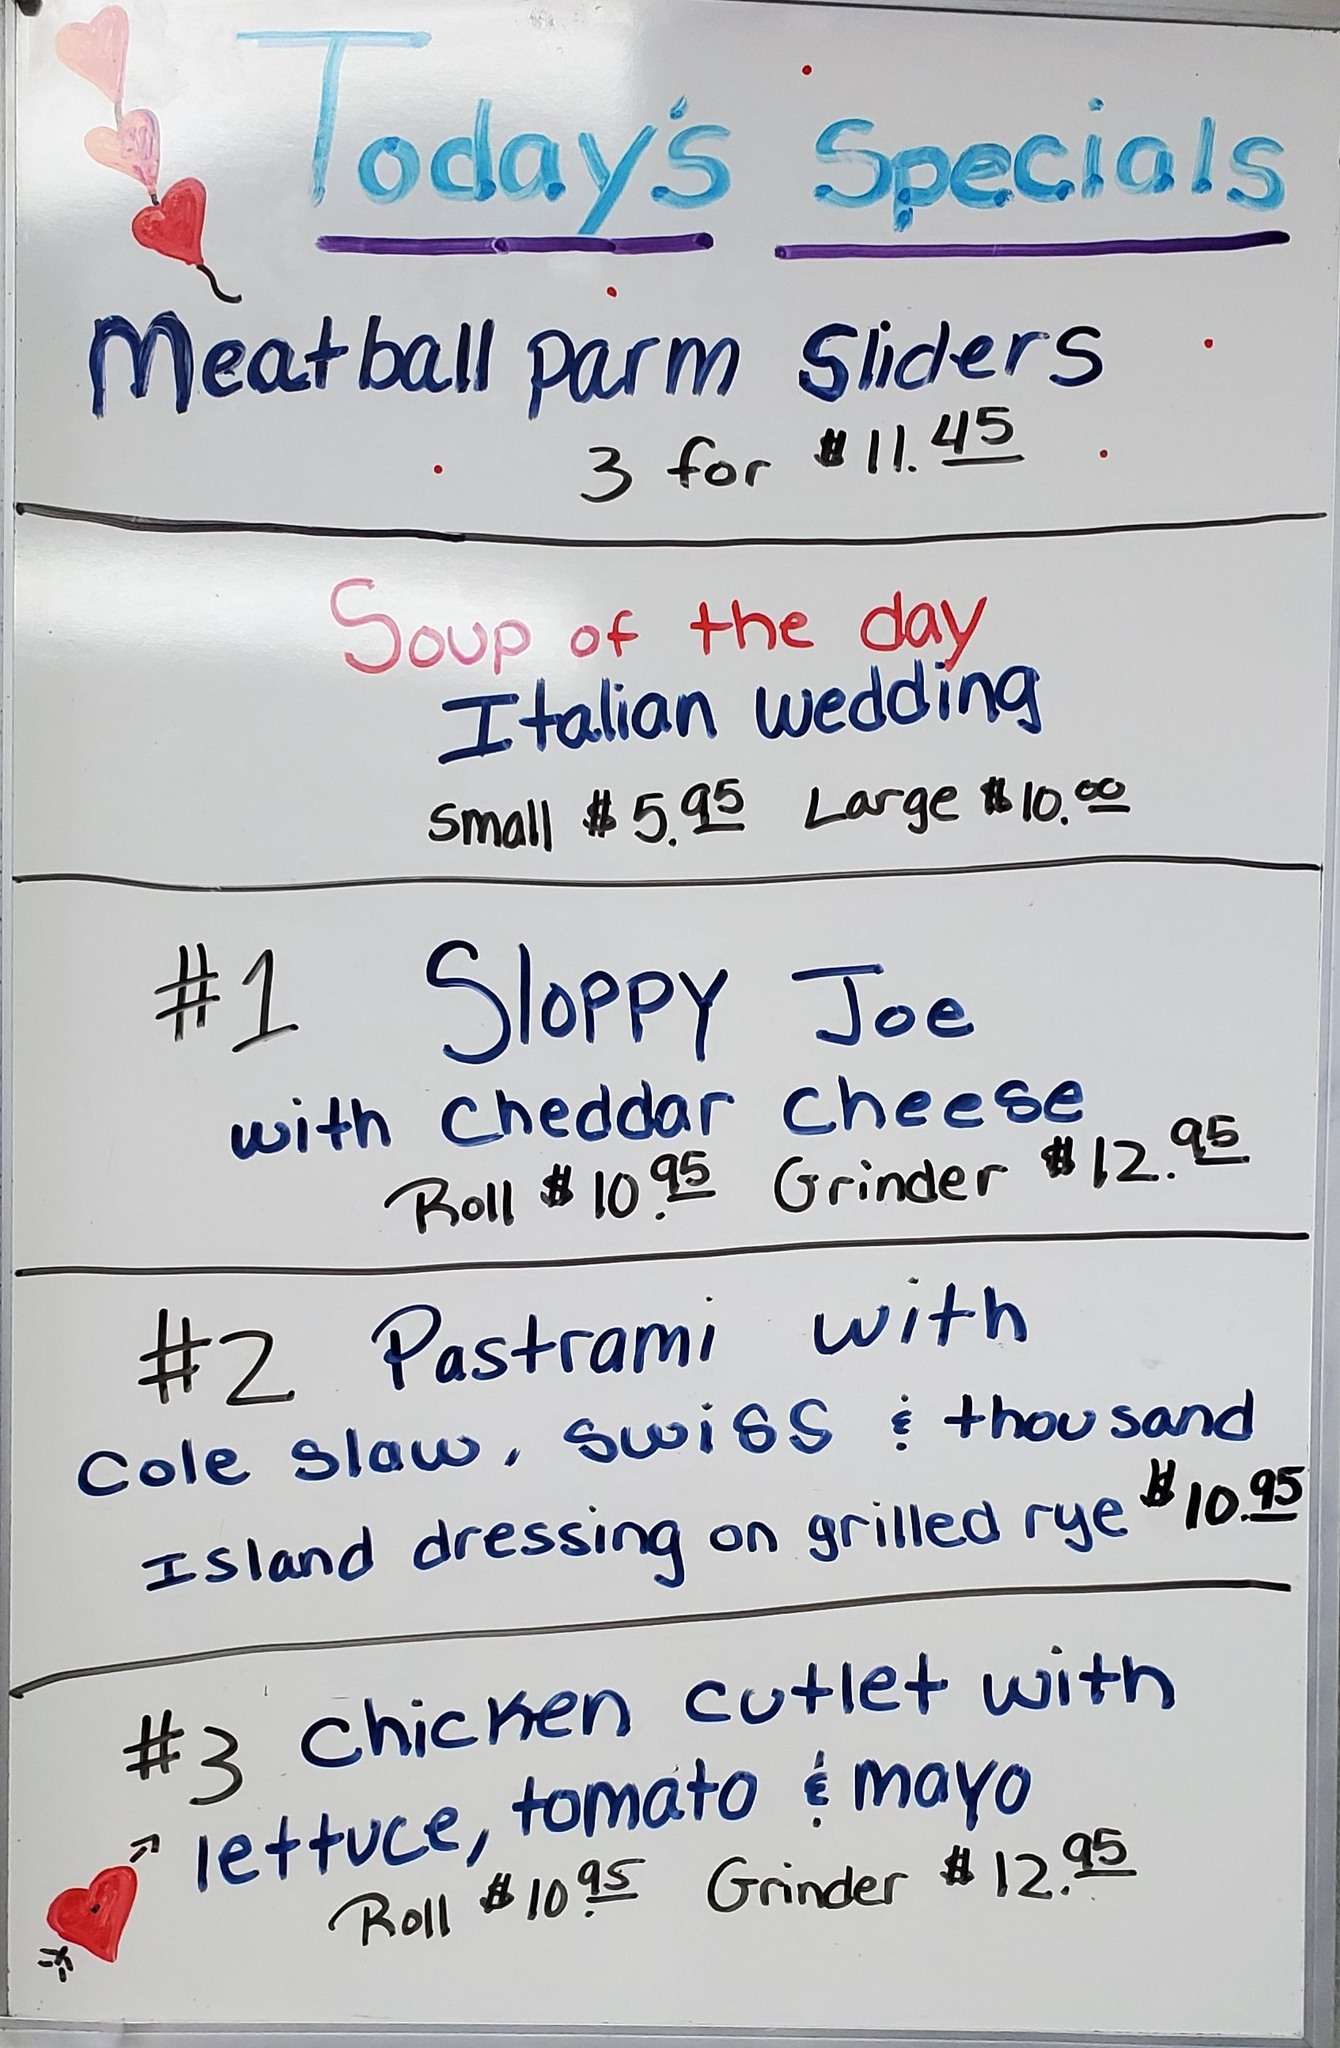 Today's Specials
Meatball Parm Sliders
3 for $11.45
Soup of the day
Italian wedding
Small $5.95 Large $10.00
#1 Sloppy Joe
with Cheddar Cheese
Roll $10.95 Grinder $12.95
#2 Pastrami with
Cole slaw, swiss & thousand
Island dressing on grilled rye $10.95
#3 Chicken cutlet with
lettuce, tomato & mayo
Roll $10.95 Grinder $12.95